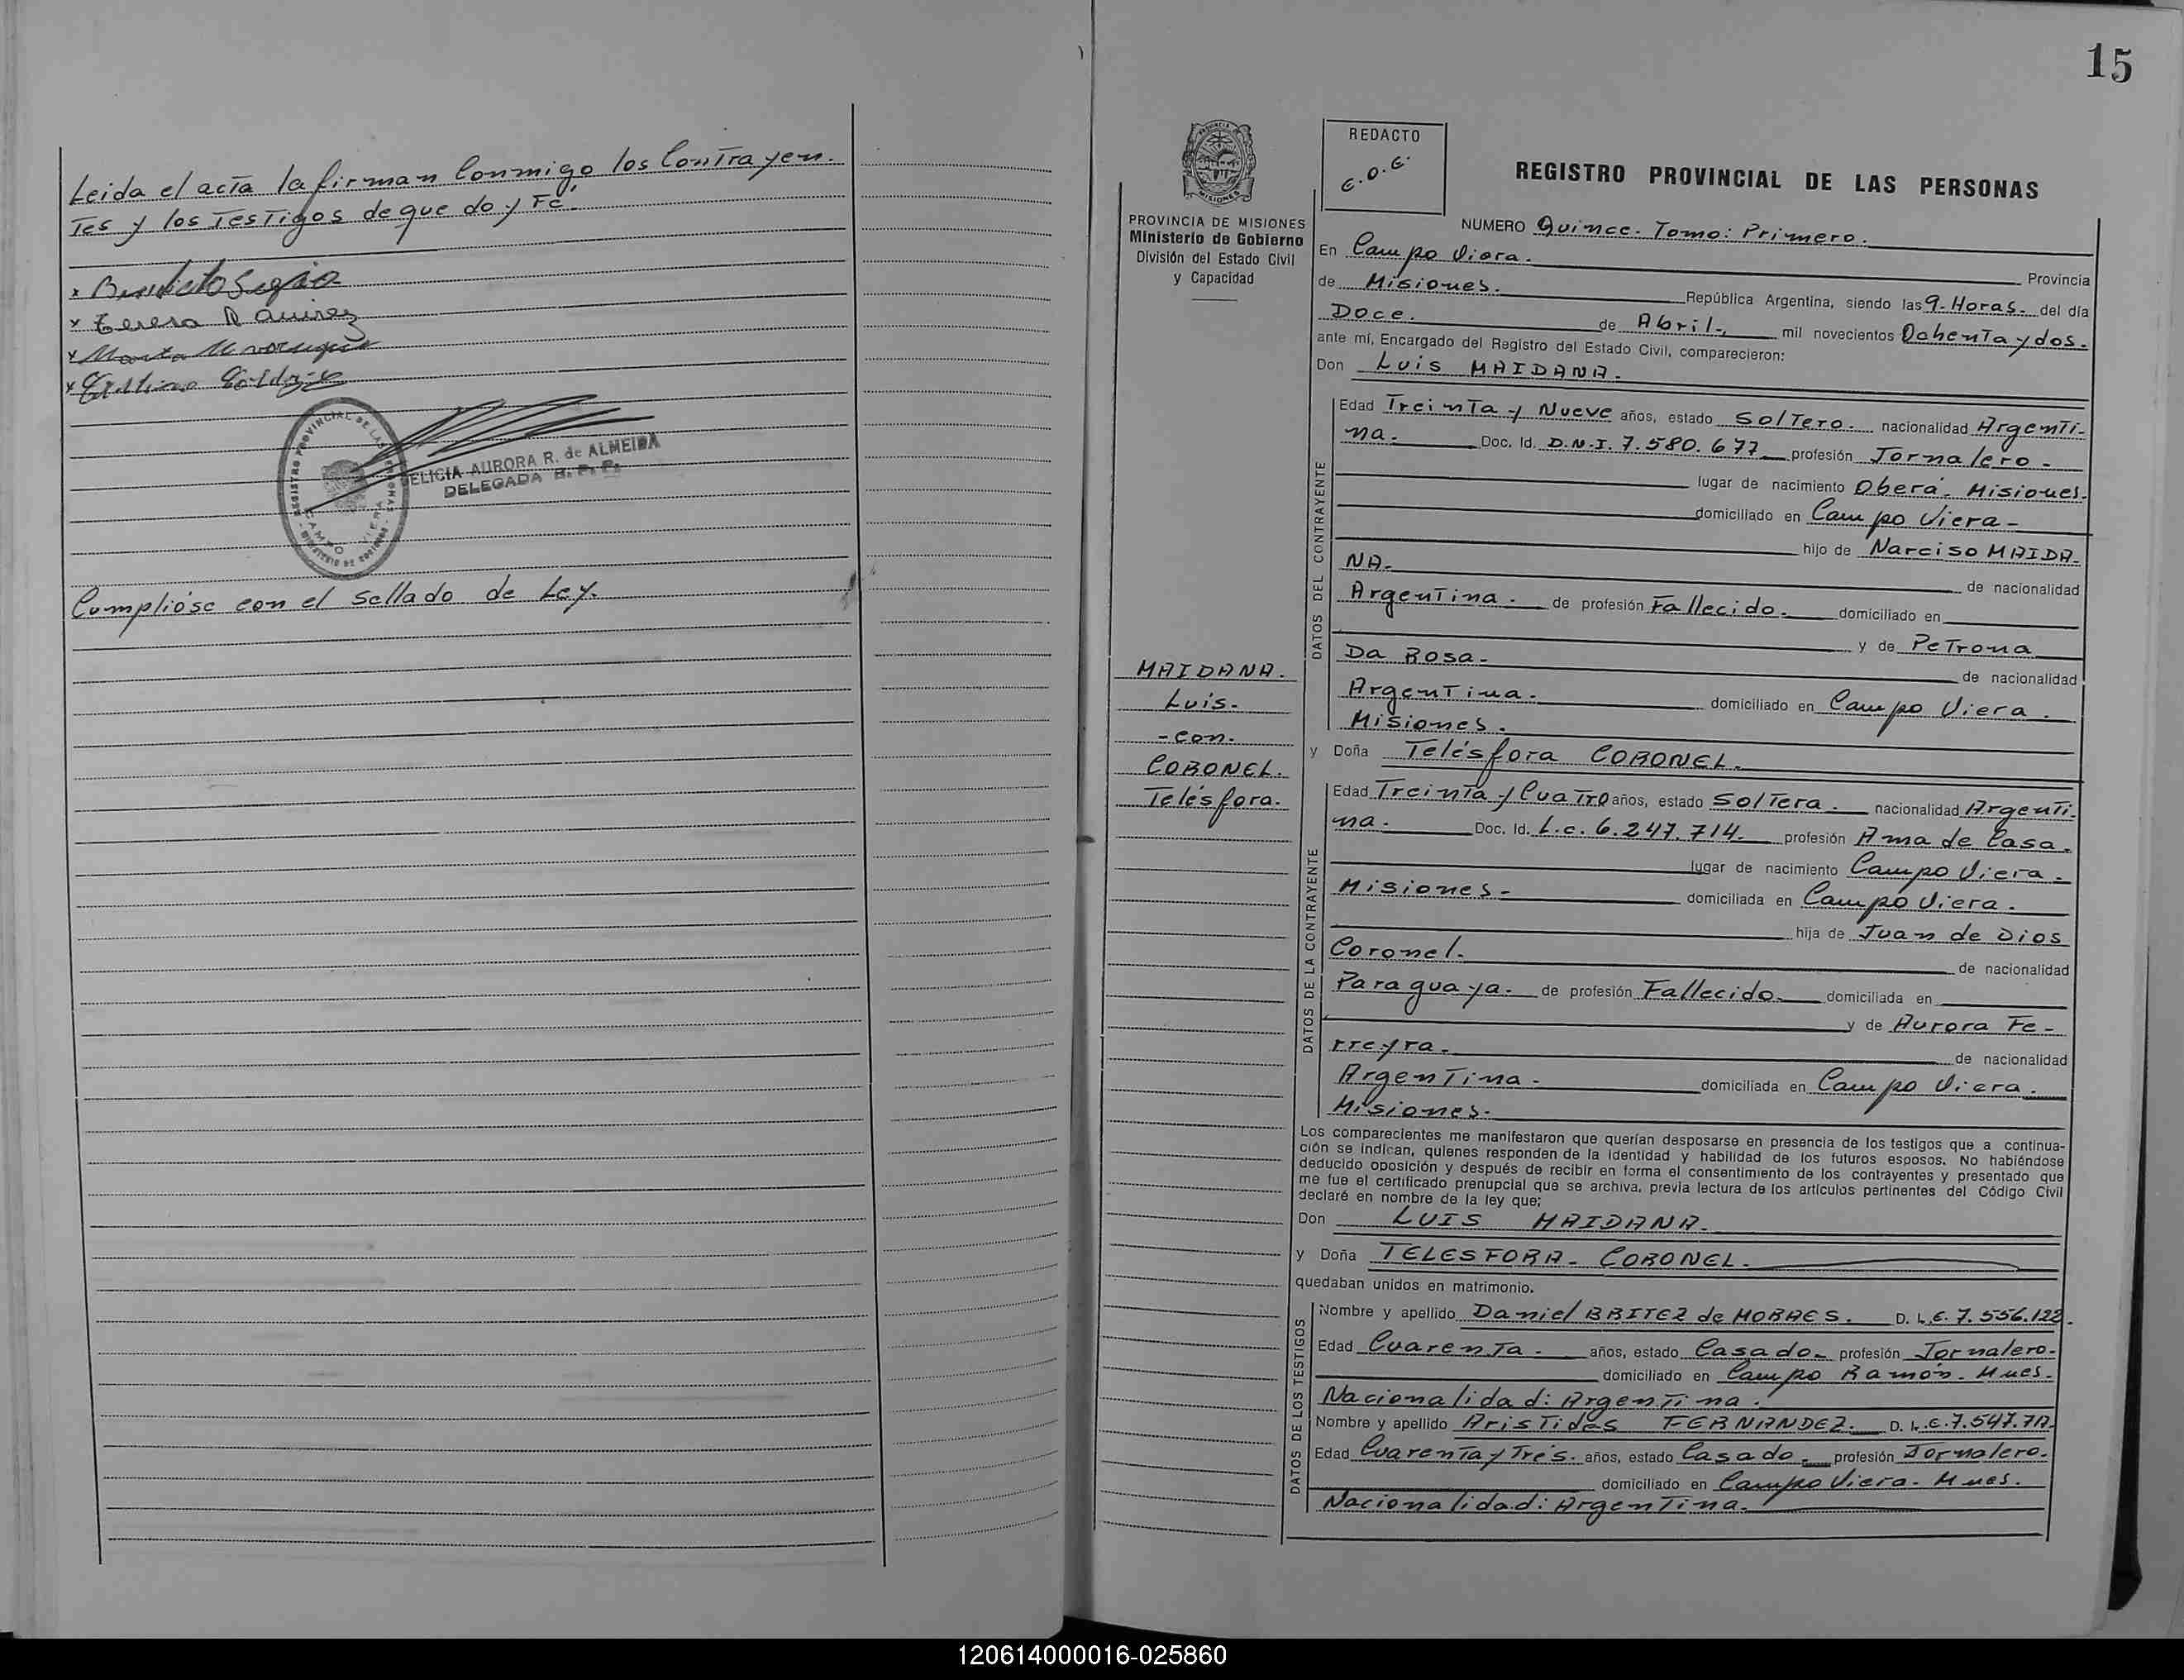 Leida el acta la firman Conmigo los Contrayen.
tes y los Testigos de que doy Fé.
x
x Teresa Ramirez
x
x
REGISTRO PROVINCIAL DE LAS PERSONAS
CAMPO VIERA
DELICIA AURORA R. de ALMEIDA
DELEGADA R. P. P.
Cumplióse con el sellado de Ley.
15
REDACTO
C.O.C.
REGISTRO PROVINCIAL DE LAS PERSONAS
PROVINCIA DE MISIONES
Ministerio de Gobierno
División del Estado Civil
y Capacidad
NUMERO Quince. Tomo: Primero.
En Campo Viera. Provincia
de Misiones. República Argentina, siendo las 9. Horas. del día
Doce. de Abril. mil novecientos Ochenta y dos.
ante mí, Encargado del Registro del Estado Civil, comparecieron:
Don Luis MAIDANA.
DATOS DEL CONTRAYENTE
Edad Treinta y Nueve años, estado Soltero. nacionalidad Argenti-
na. Doc. Id. D.N.I. 7.580.677 profesión Jornalero.
lugar de nacimiento Oberá. Misiones.
domiciliado en Campo Viera -
hijo de Narciso MAIDA-
NA. de nacionalidad
Argentina. de profesión Fallecido. domiciliado en
y de Petrona
Da Rosa. de nacionalidad
Argentina. domiciliado en Campo Viera.
Misiones.
MAIDANA.
Luis.
- con.
CORONEL.
Telésfora.
y Doña Telésfora CORONEL.
DATOS DE LA CONTRAYENTE
Edad Treinta y Cuatro años, estado Soltera. nacionalidad Argenti-
na. Doc. Id. L.C. 6.247.714. profesión Ama de Casa.
lugar de nacimiento Campo Viera.
Misiones. domiciliada en Campo Viera.
hija de Juan de Dios
Coronel. de nacionalidad
Paraguaya. de profesión Fallecido. domiciliada en
y de Aurora Fe-
rreyra. de nacionalidad
Argentina. domiciliada en Campo Viera.
Misiones.
Los comparecientes me manifestaron que querían desposarse en presencia de los testigos que a continua-
ción se indican, quienes responden de la identidad y habilidad de los futuros esposos. No habiéndose
deducido oposición y después de recibir en forma el consentimiento de los contrayentes y presentado que
me fue el certificado prenupcial que se archiva, previa lectura de los artículos pertinentes del Código Civil
declaré en nombre de la ley que;
Don LUIS MAIDANA.
y Doña TELESFORA - CORONEL.
quedaban unidos en matrimonio.
DATOS DE LOS TESTIGOS
Nombre y apellido Daniel BRITEZ de MORAES. D. I. E. 7.556.122.
Edad Cuarenta. años, estado Casado. profesión Jornalero.
domiciliado en Campo Ramón. Mnes.
Nacionalidad: Argentina.
Nombre y apellido Aristides FERNANDEZ. D. I. E. 7.547.
Edad Cuarenta y Tres. años, estado Casado. profesión Jornalero.
domiciliado en Campo Viera. Mnes.
Nacionalidad: Argentina.
120614000016-025860